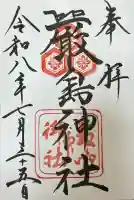 奉拝
嚴島神社
令和八年七月二十五日